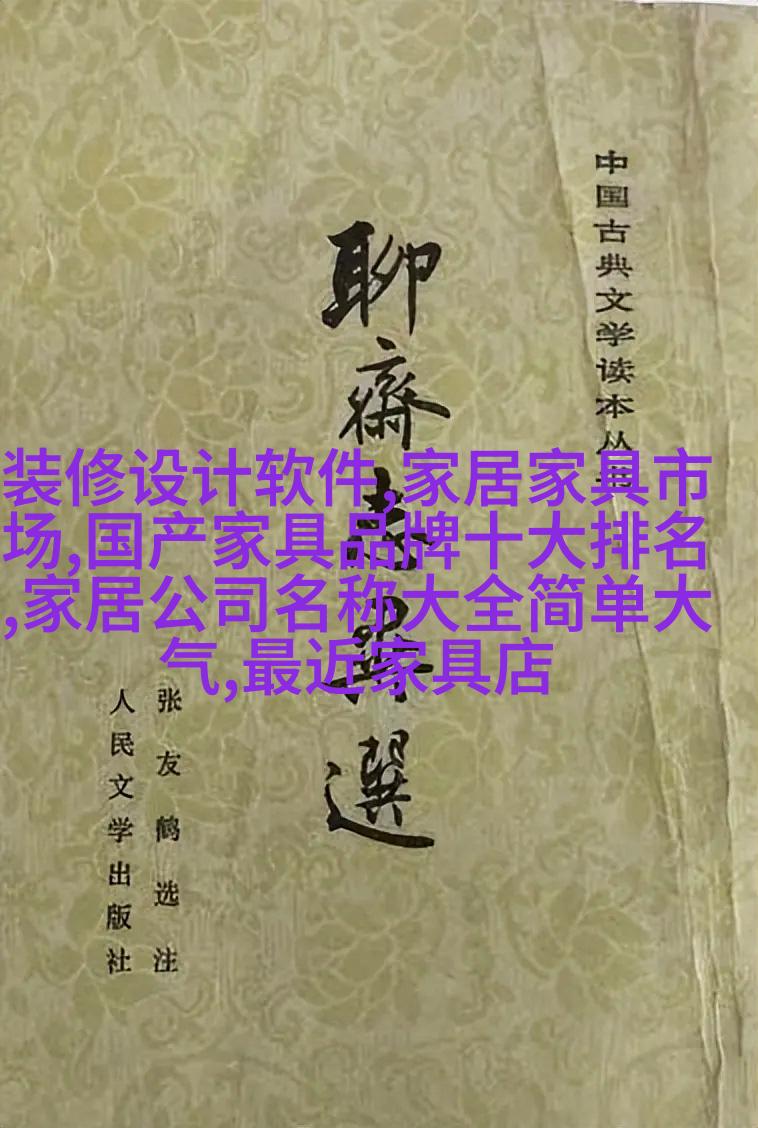 中国古典文学读本丛书
聊齋志異選
张友鹤选注
人民文学出版社
装修设计软件,家居家具市
场,国产家具品牌十大排名
,家居公司名称大全简单大
气,最近家具店